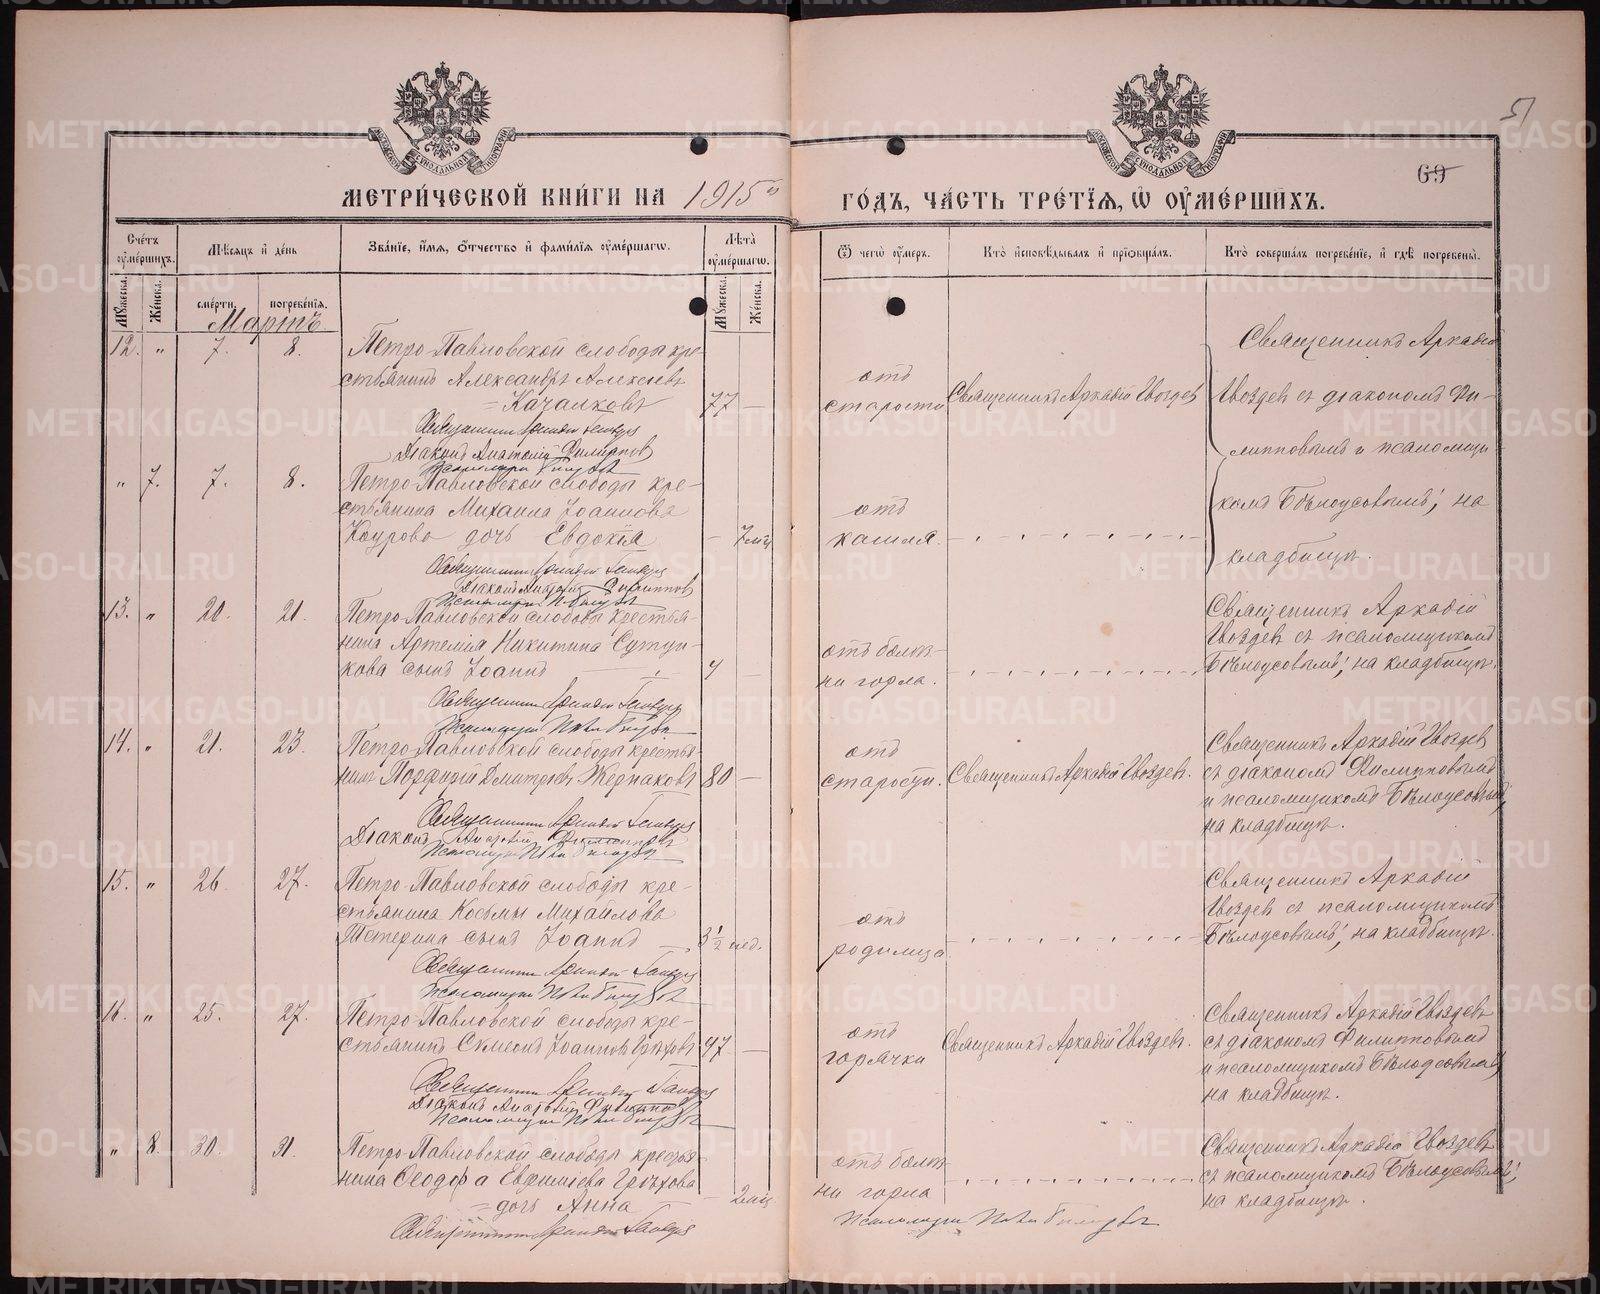 51
69
МЕТРИЧЕСКОЙ КНИГИ НА 1915й ГОДЪ, ЧАСТЬ ТРЕТІЯ, Ѡ ОУМЕРШИХЪ.
Счетъ оумершихъ.
Мѣсяцъ и день
Званіе, имя, отчество и фамилія оумершагѡ.
Лѣта оумершагѡ.
Ѿ чегѡ оумеръ.
Кто исповѣдывалъ и пріобщалъ.
Кто совершалъ погребеніе, и гдѣ погребены.
Мужеска. Женска. смерти. погребенія. Мужеска. Женска.
Мартъ
12. " 7. 8.
Петро-Павловской слободы кре-
стьянинъ Александръ Алексѣевъ
= Качалковъ 77 —
отъ
старости
Священникъ Аркадій Гвоздевъ
Священникъ Аркадій
Гвоздевъ съ діакономъ Фи-
липповымъ и псаломщи-
комъ Бѣлоусовымъ; на
кладбищѣ.
Священникъ Аркадій Гвоздевъ
Діаконъ Анатолій Филипповъ
" 7. 7. 8.
Петро-Павловской слободы кре-
стьянина Михаила Іоаннова
Коурова дочь Евдокія — 7 мѣц
отъ
кашля.
Священникъ Аркадій Гвоздевъ
Діаконъ Анатолій Филипповъ
13. " 20. 21.
Петро-Павловской слободы крестья-
нина Артемія Никитина Сутуп-
кова сынъ Іоаннъ 4 —
отъ болѣз-
ни горла.
Священникъ Аркадій
Гвоздевъ съ псаломщикомъ
Бѣлоусовымъ; на кладбищѣ.
Священникъ Аркадій Гвоздевъ
14. " 21. 23.
Петро-Павловской слободы крестья-
нинъ Порфирій Дмитріевъ Жернаковъ 80 —
отъ
старости.
Священникъ Аркадій Гвоздевъ.
Священникъ Аркадій Гвоздевъ
съ діакономъ Филипповымъ
и псаломщикомъ Бѣлоусовымъ,
на кладбищѣ.
Священникъ Аркадій Гвоздевъ
Діаконъ Анатолій Филипповъ
15. " 26. 27.
Петро-Павловской слободы кре-
стьянина Косьмы Михайлова
Тетерина сынъ Іоаннъ 3½ нед.
отъ
родимца
Священникъ Аркадій
Гвоздевъ съ псаломщикомъ
Бѣлоусовымъ, на кладбищѣ.
Священникъ Аркадій Гвоздевъ
16. " 25. 27.
Петро-Павловской слободы кре-
стьянинъ Симеонъ Іоанновъ Грѣховъ 47 —
отъ
горячки
Священникъ Аркадій Гвоздевъ.
Священникъ Аркадій Гвоздевъ
съ діакономъ Филипповымъ
и псаломщикомъ Бѣлоусовымъ,
на кладбищѣ.
Священникъ Аркадій Гвоздевъ
Діаконъ Анатолій Филипповъ
" 8. 30. 31.
Петро-Павловской слободы крестья-
нина Ѳеодора Евфиміева Грѣхова
= дочь Анна — 2 мѣц
отъ болѣз-
ни горла
Священникъ Аркадій Гвоздевъ
съ псаломщикомъ Бѣлоусовымъ;
на кладбищѣ.
Священникъ Аркадій Гвоздевъ
METRIKI.GASO-URAL.RU